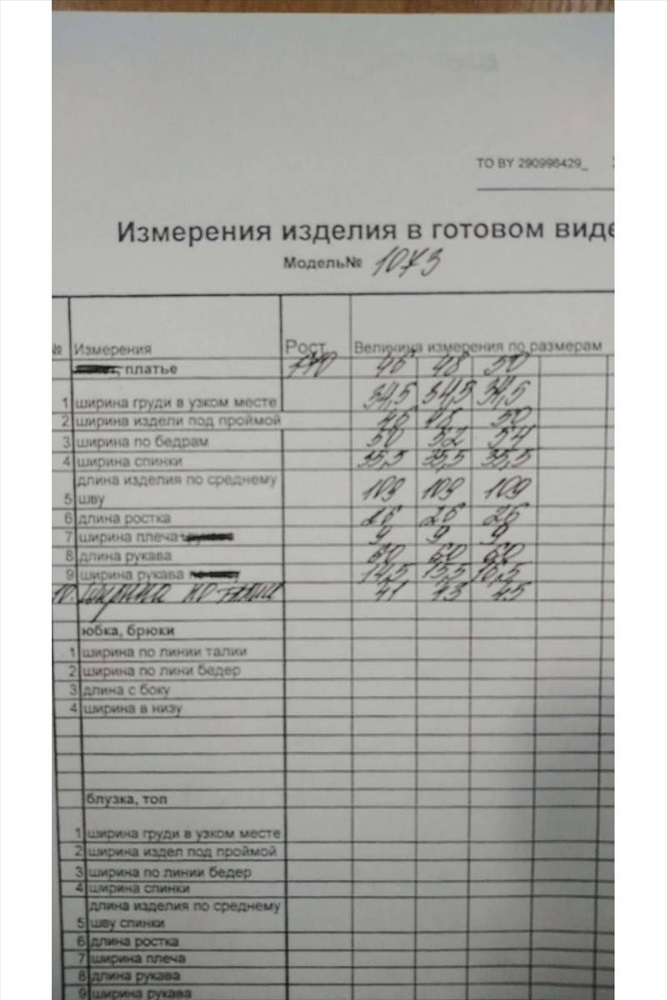 ТО BY 290996429_
Измерения изделия в готовом виде
Модель№ 1073
№ Измерения Рост Величина измерения по размерам
платье 170 46 48 50
1 ширина груди в узком месте 34,5 34,5 34,5
2 ширина издели под проймой 46 48 50
3 ширина по бедрам 50 52 54
4 ширина спинки 35,5 35,5 35,5
длина изделия по среднему
5 шву 109 109 109
6 длина ростка 26 26 26
7 ширина плеча 9 9 9
8 длина рукава 60 60 60
9 ширина рукава 14,5 15,5 16,5
10. Ширина по талии 41 43 45
юбка, брюки
1 ширина по линии талии
2 ширина по лини бедер
3 длина с боку
4 ширина в низу
блузка, топ
1 ширина груди в узком месте
2 ширина издел под проймой
3 ширина по линии бедер
4 ширина спинки
длина изделия по среднему
5 шву спинки
6 длина ростка
7 ширина плеча
8 длина рукава
9 ширина рукава